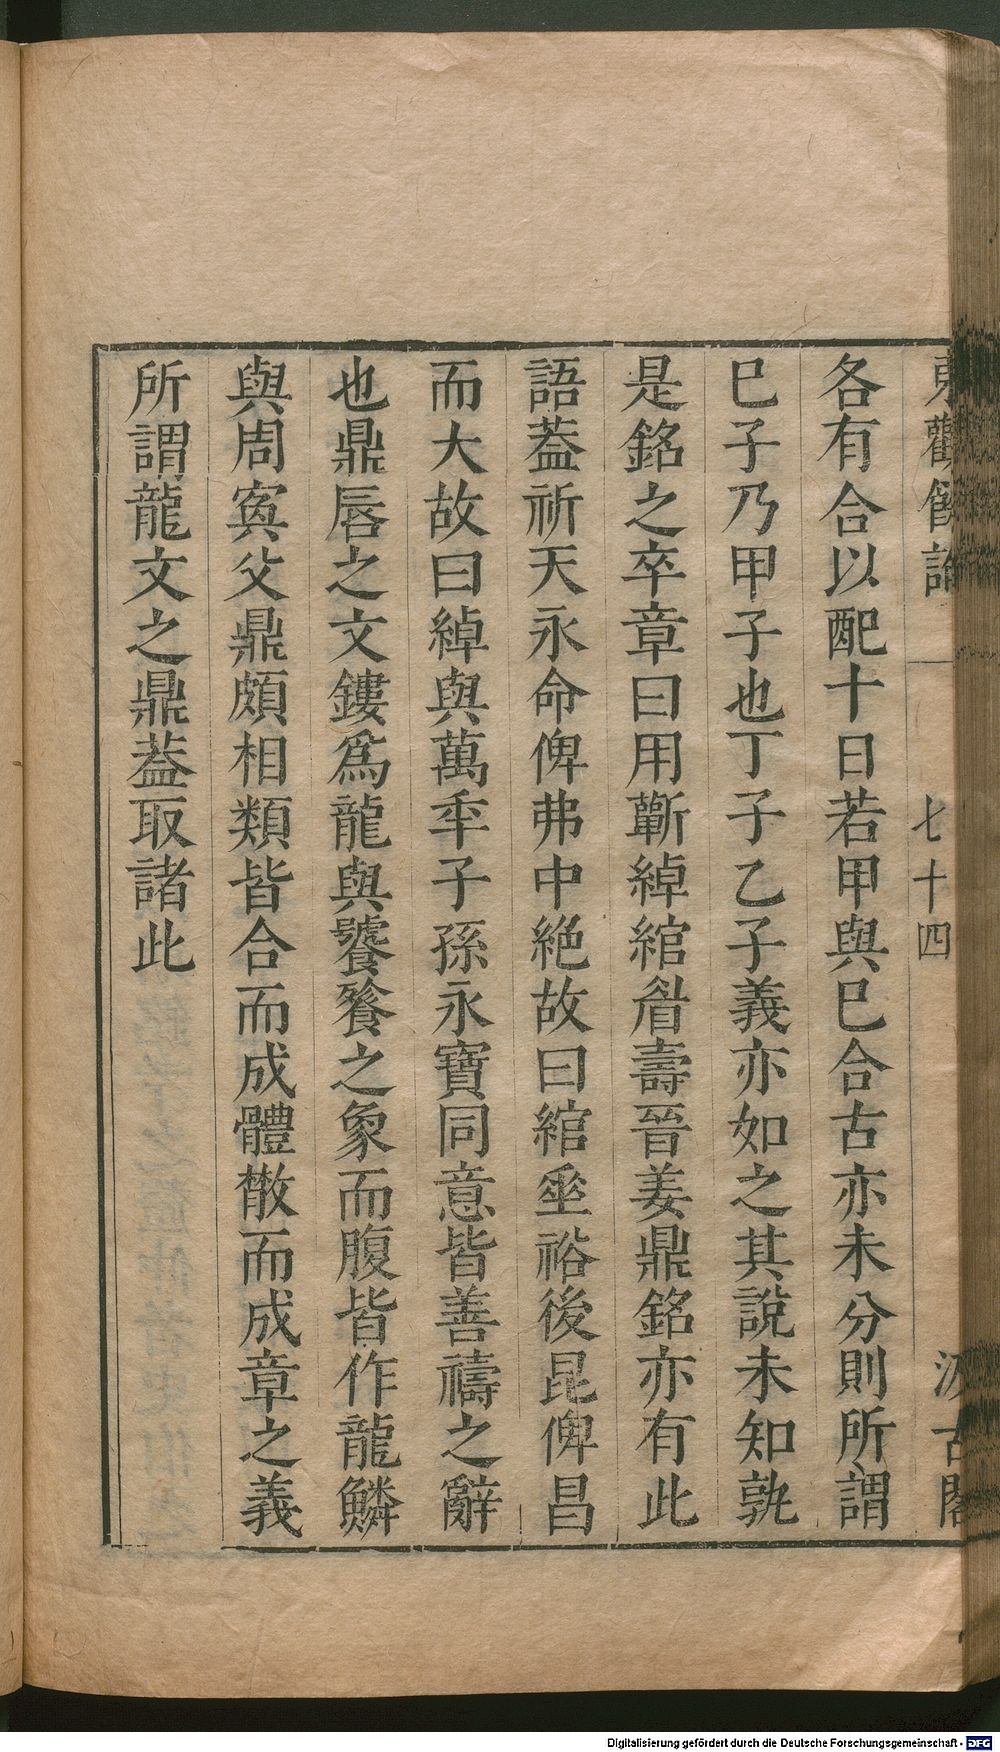 東觀餘論
七十四
汲古閣
各有合以配十日若甲與巳合古亦未分則所謂
巳子乃甲子也丁子乙子義亦如之其說未知孰
是銘之卒章曰用蘄綽綰眉壽晉姜鼎銘亦有此
語葢祈天永命俾弗中絕故曰綰坙裕後昆俾昌
而大故曰綽與萬秊子孫永寶同意皆善禱之辭
也鼎唇之文鏤爲龍與饕餮之象而腹皆作龍鱗
與周寅父鼎頗相類皆合而成體散而成章之義
所謂龍文之鼎葢取諸此
Digitalisierung gefördert durch die Deutsche Forschungsgemeinschaft - DFG